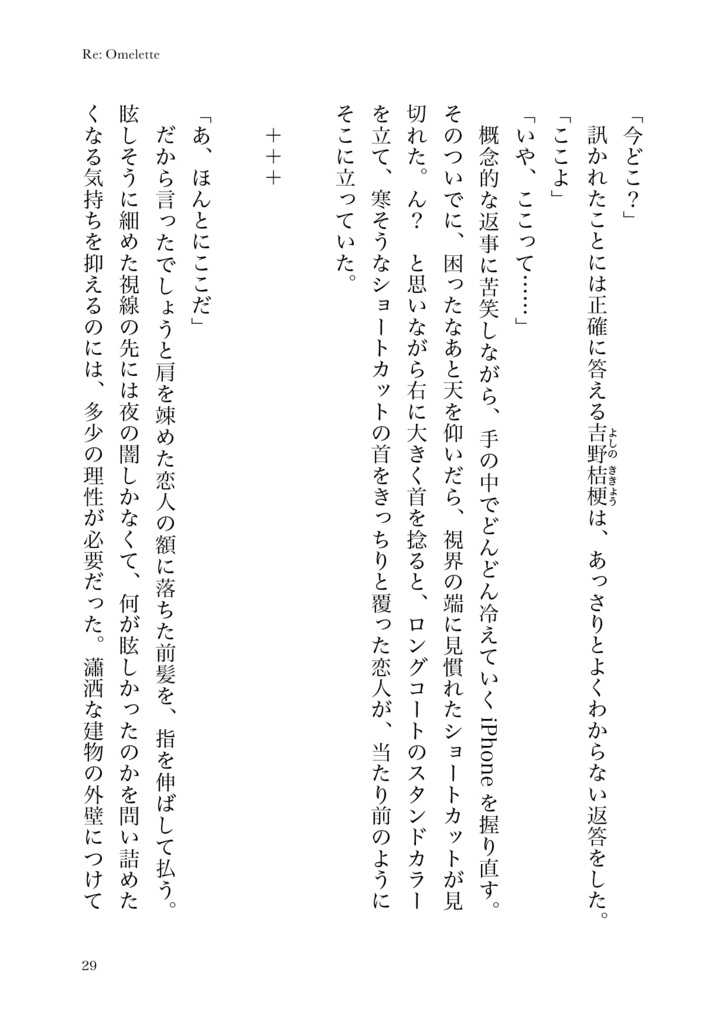 Re: Omelette
「今どこ？」
訊かれたことには正確に答える吉野桔梗は、あっさりとよくわからない返答をした。
よしの ききょう
「ここよ」
「いや、ここって……」
概念的な返事に苦笑しながら、手の中でどんどん冷えていくiPhoneを握り直す。
そのついでに、困ったなあと天を仰いだら、視界の端に見慣れたショートカットが見
切れた。ん？　と思いながら右に大きく首を捻ると、ロングコートのスタンドカラー
を立て、寒そうなショートカットの首をきっちりと覆った恋人が、当たり前のように
そこに立っていた。
＋＋＋
「あ、ほんとにここだ」
だから言ったでしょうと肩を竦めた恋人の額に落ちた前髪を、指を伸ばして払う。
眩しそうに細めた視線の先には夜の闇しかなくて、何が眩しかったのかを問い詰めた
くなる気持ちを抑えるのには、多少の理性が必要だった。瀟洒な建物の外壁につけて
29